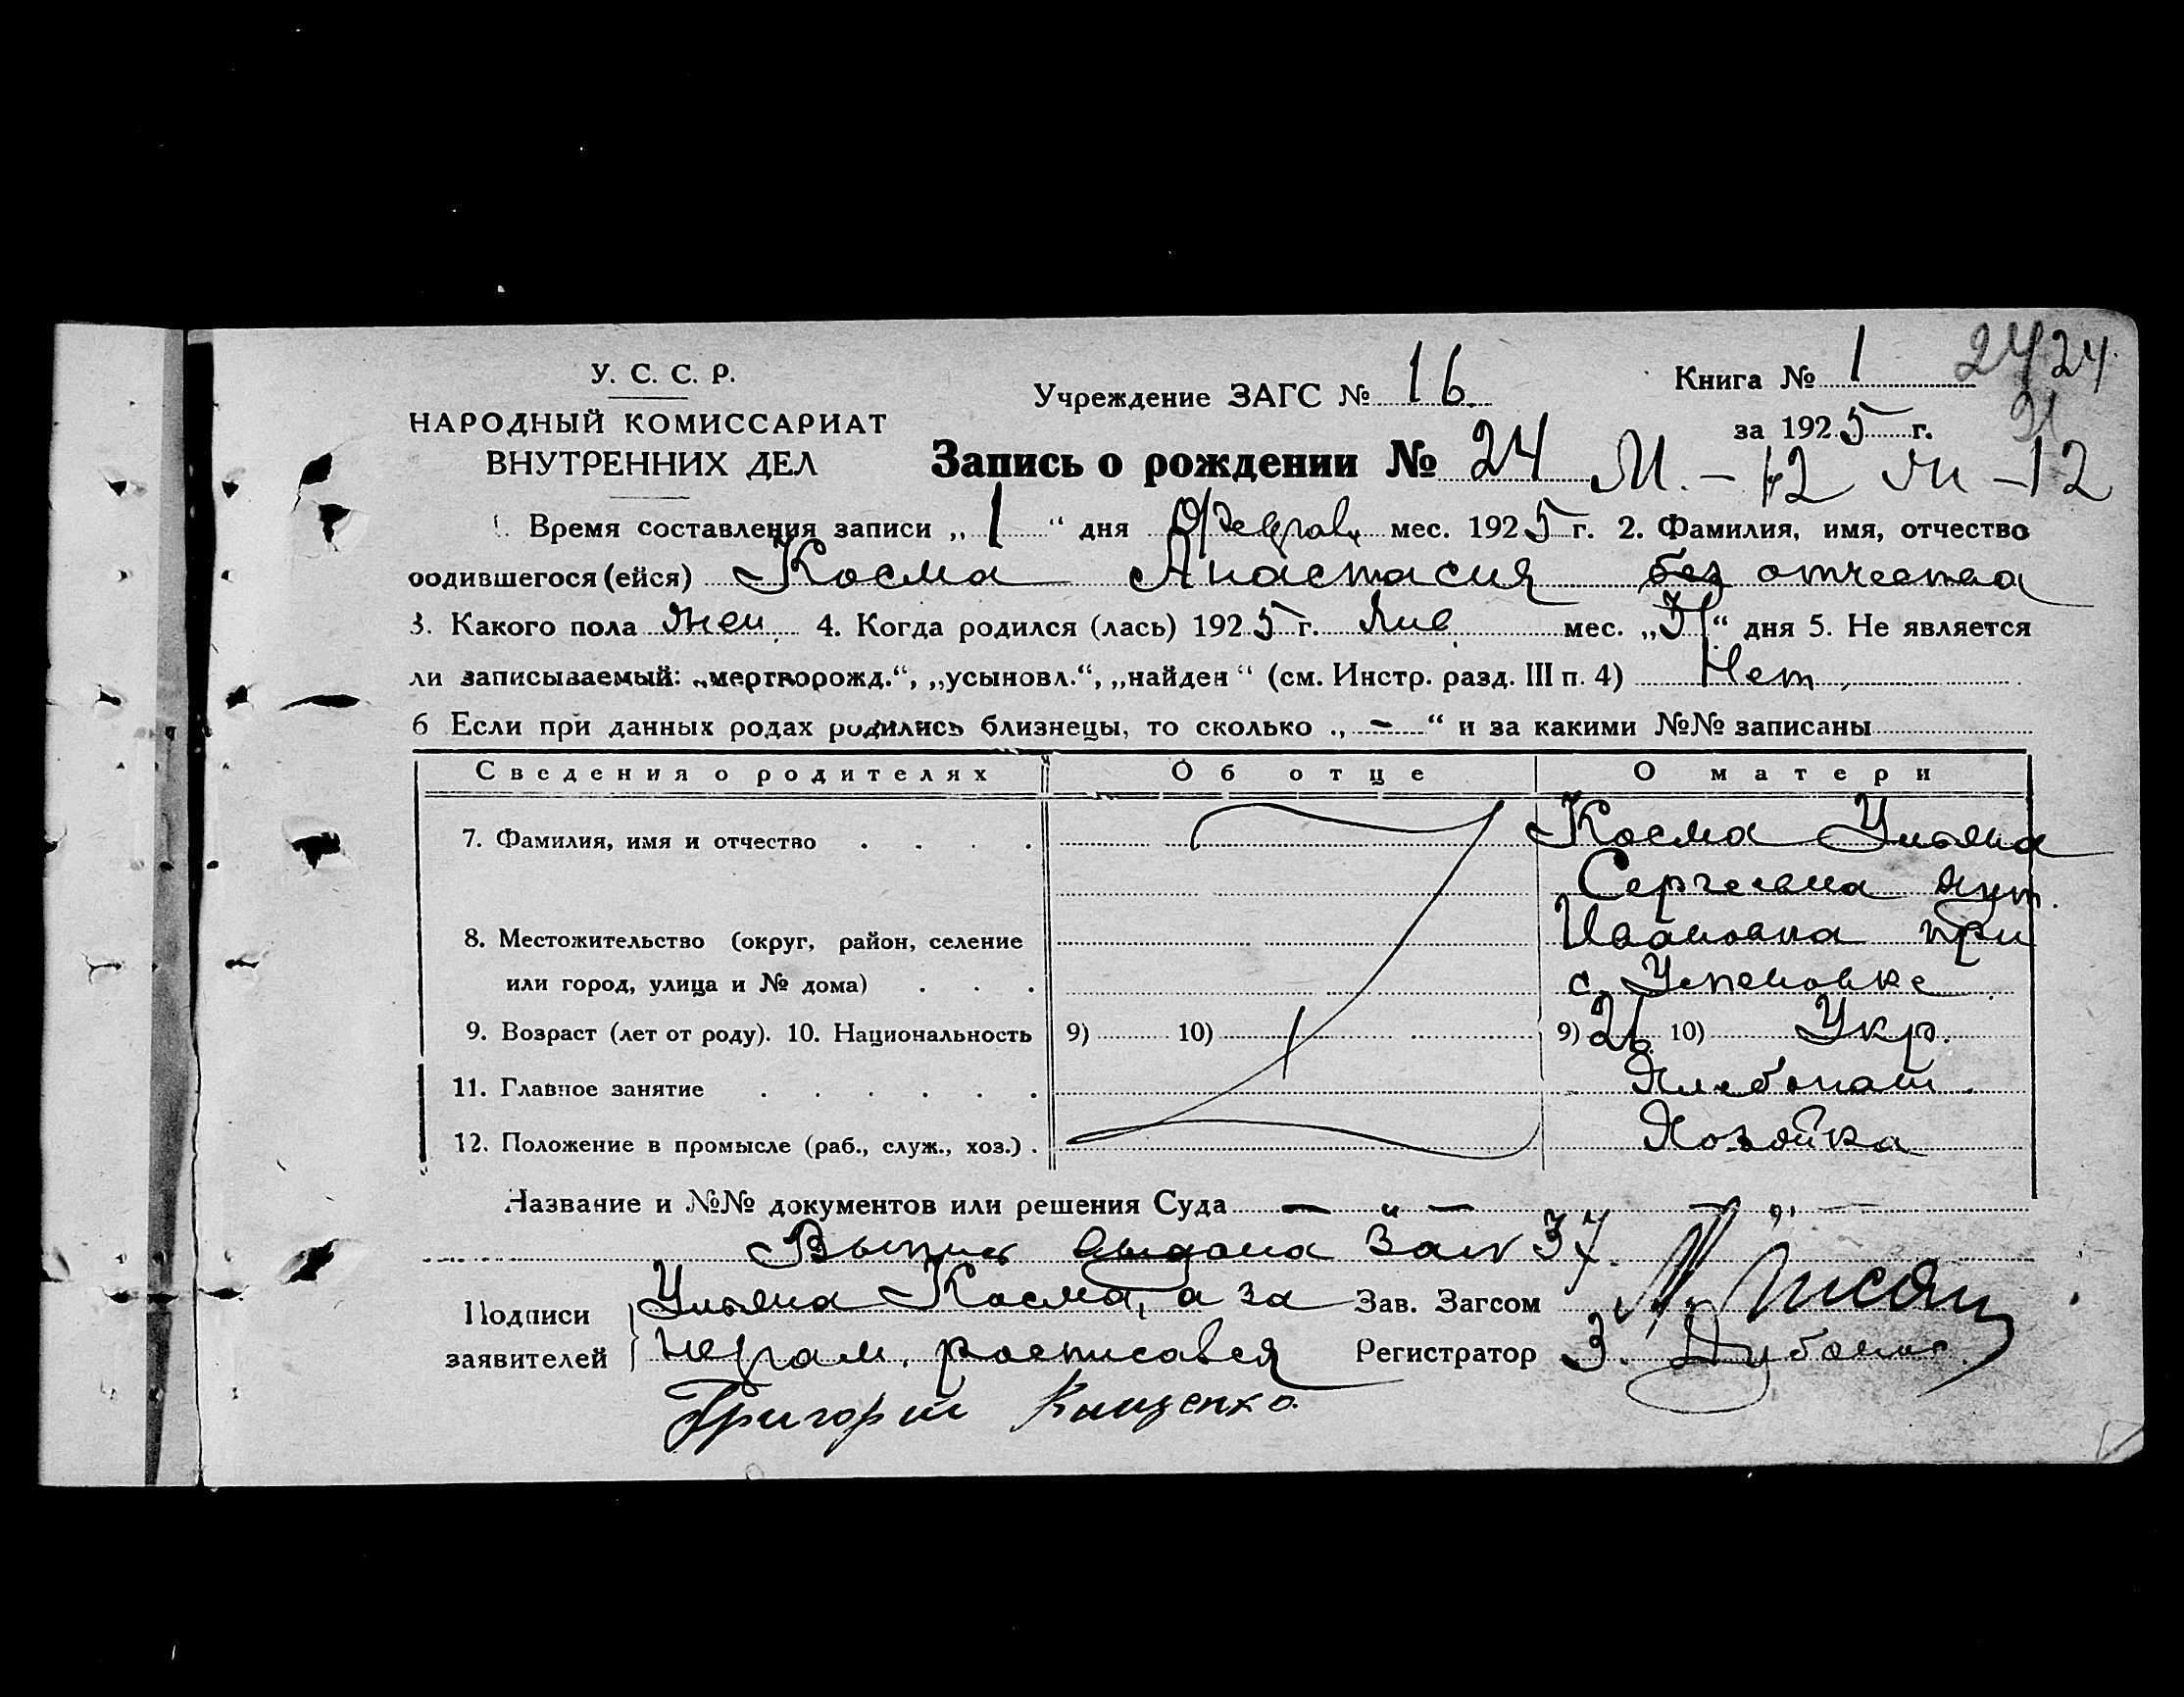 У. С. С. Р.
НАРОДНЫЙ КОМИССАРИАТ
ВНУТРЕННИХ ДЕЛ
Учреждение ЗАГС № 16.
Книга № 1
24 24
за 1925 г.
Запись о рождении № 24 М. - 12 м - 12
Время составления записи „1“ дня Феврал. мес. 1925 г. 2. Фамилия, имя, отчество
родившегося (ейся) Косма Анастасия без отчества
3. Какого пола жен. 4. Когда родился (лась) 1925 г. Янв. мес. „31“ дня 5. Не является
ли записываемый: „мертворожд.“, „усыновл.“, „найден“ (см. Инстр. разд. III п. 4) Нет.
6 Если при данных родах родились близнецы, то сколько „-“ и за какими №№ записаны
Сведения о родителях Об отце О матери
7. Фамилия, имя и отчество Косма Ульяна
Сергеевна хут.
8. Местожительство (округ, район, селение Ивановка при
или город, улица и № дома) с. Успеновке
9. Возраст (лет от роду). 10. Национальность 9) 10) 9) 26. 10) Укр.
11. Главное занятие Хлебопаш.
12. Положение в промысле (раб., служ., хоз.) Хозяйка
Название и №№ документов или решения Суда — „ — „ —
Выпись выдана за № 37.
Подписи заявителей Ульяна Косма, а за
неграм. расписался
Григорий
Зав. Загсом
Регистратор З.